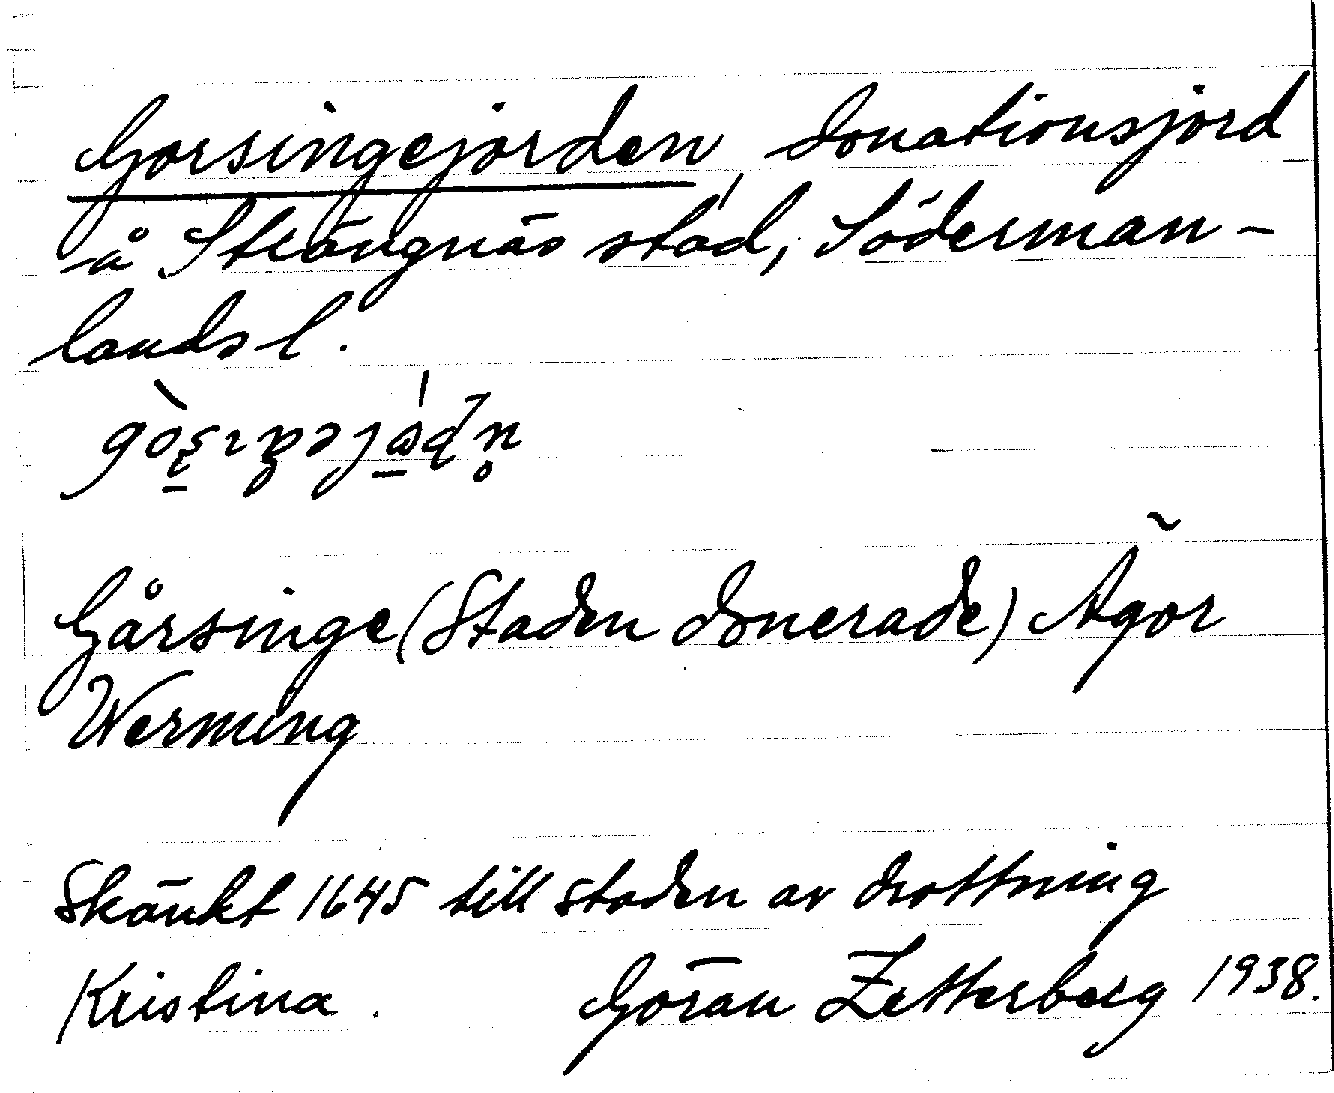 Gorsingejorden, donationsjord
å Strängnäs stad, Söderman-
lands l.
Gårsinge (Staden donerade) Ägor
Werming
Skänkt 1645 till staden av drottning
Kristina. Göran Zetterberg 1938.